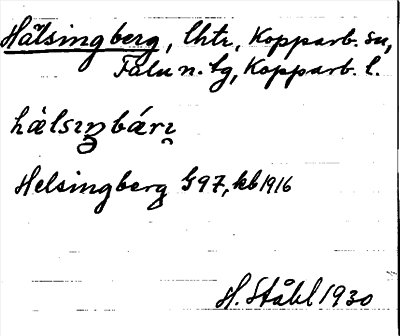 Hälsingberg, lhtr, Kopparb. sn,
Falu n. tg, Kopparb. l.
hälsıŋbárı
Helsingberg G97, kb 1916
H. Ståhl 1930